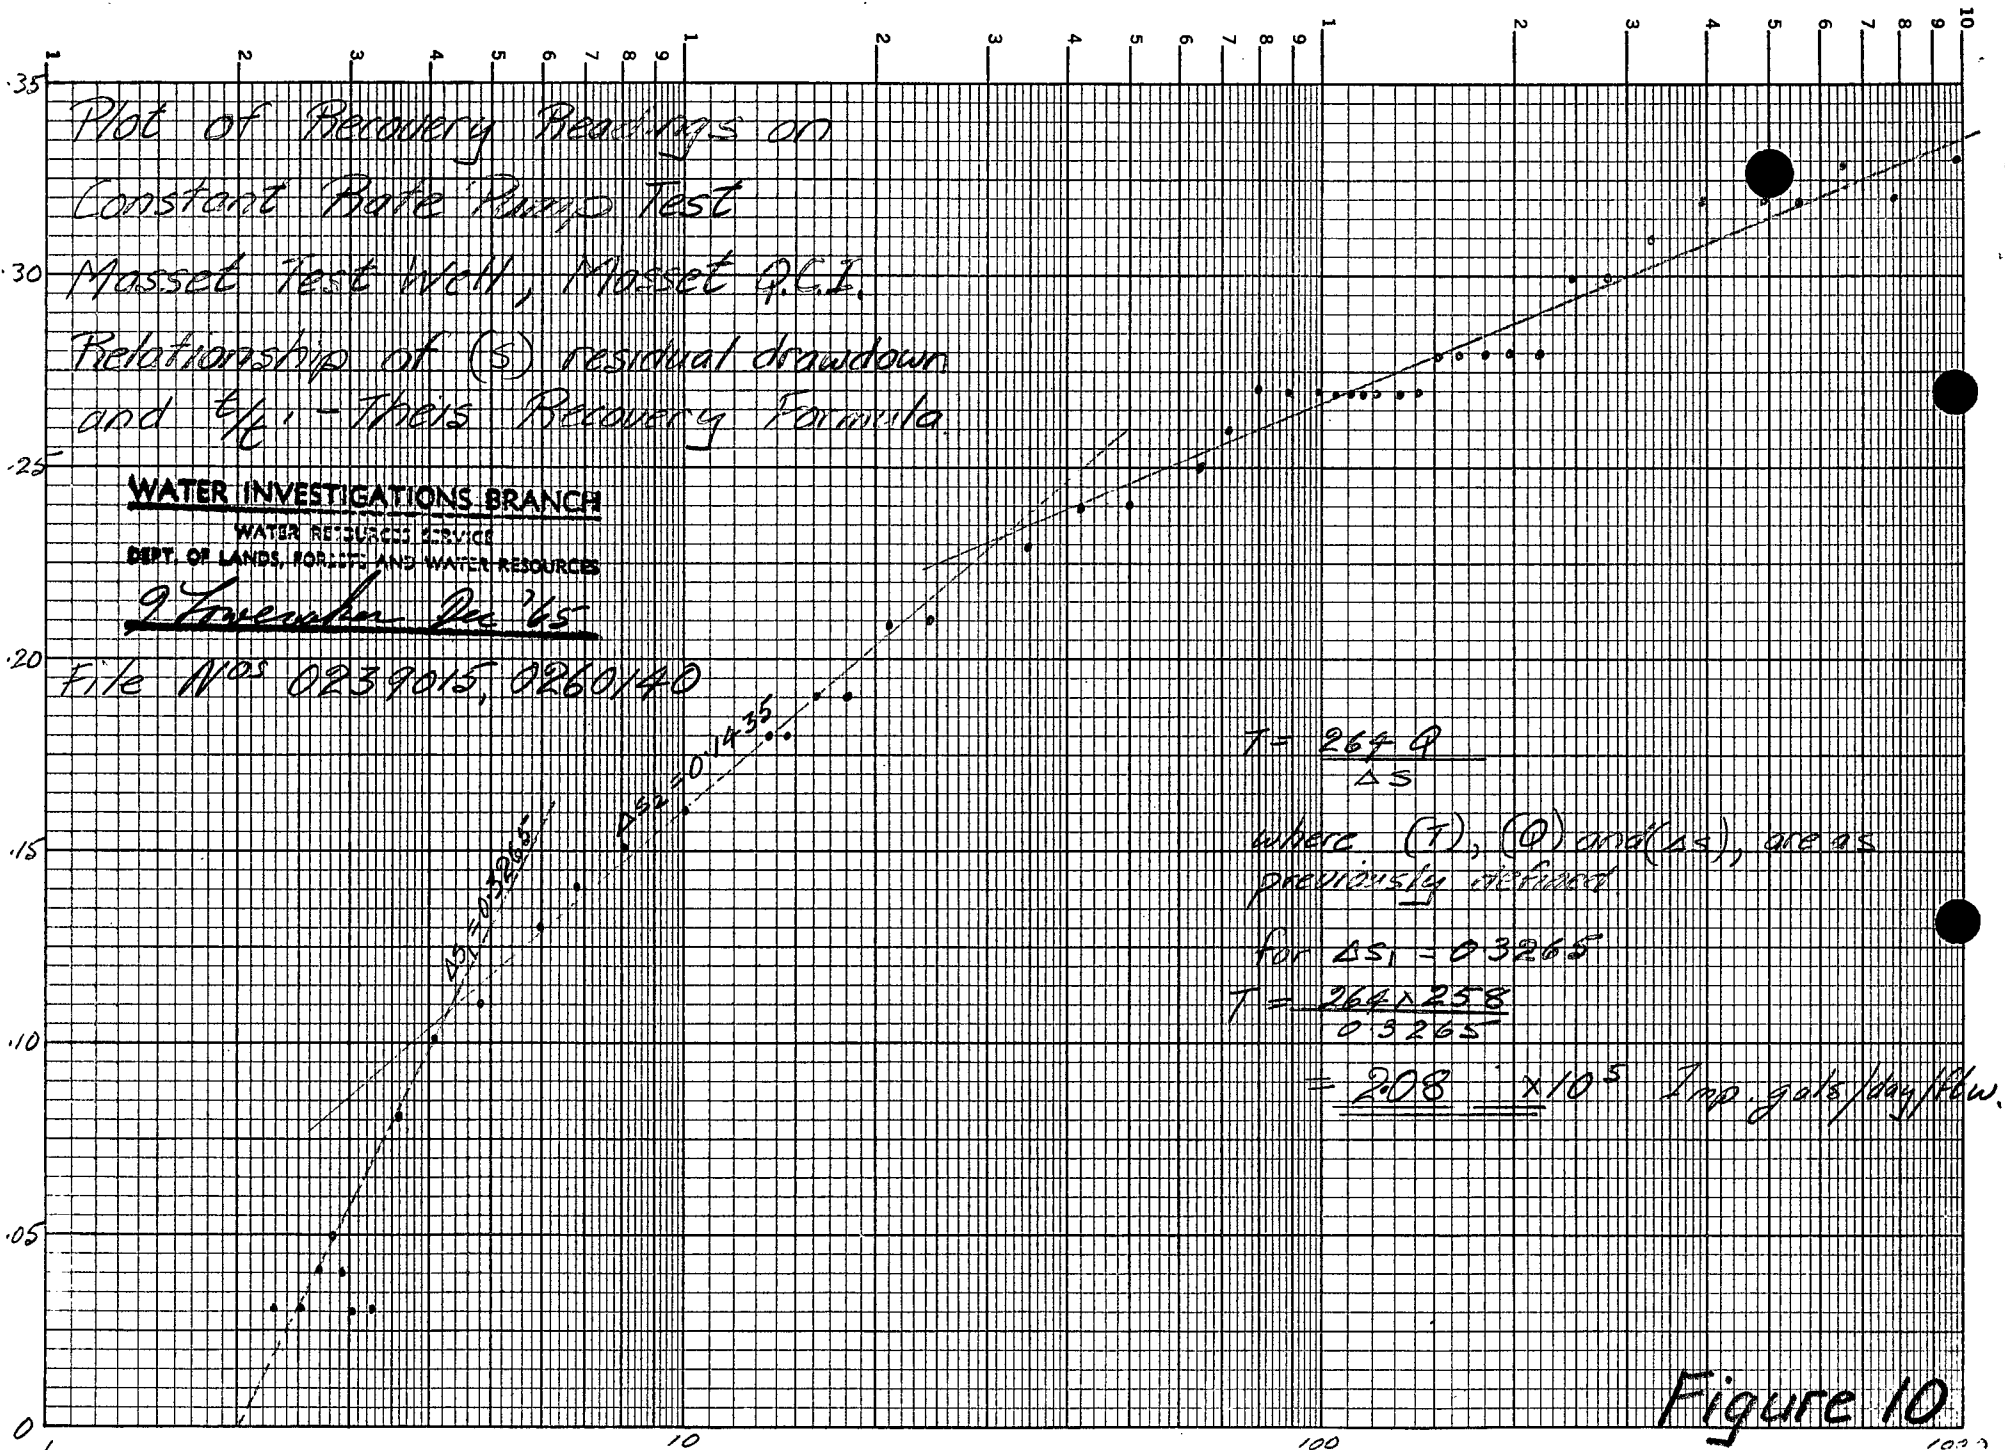 1 2 3 4 5 6 7 8 9 1 2 3 4 5 6 7 8 9 1 2 3 4 5 6 7 8 9 10
.35
Plot of Recovery Readings on
Constant Rate Pump Test
.30
Masset Test Well, Masset Q.C.I.
Relationship of (s) residual drawdown
and t/t' - Theis Recovery Formula.
.25
WATER INVESTIGATIONS BRANCH
WATER RESOURCES SERVICE
DEPT. OF LANDS, FORESTS AND WATER RESOURCES
Dec '65
.20
File Nos 0239015, 0260140
Δs2 = 0.1435
T = 264 Q
Δs
.15
Δs1 = 0.3265
where (T), (Q) and (Δs), are as
previously defined.
for Δs1 = 0.3265
T = 264 x 258
0.3265
.10
= 2.08 x10⁵ Imp. gals/day/ftw.
.05
Figure 10
0
1 10 100 1000